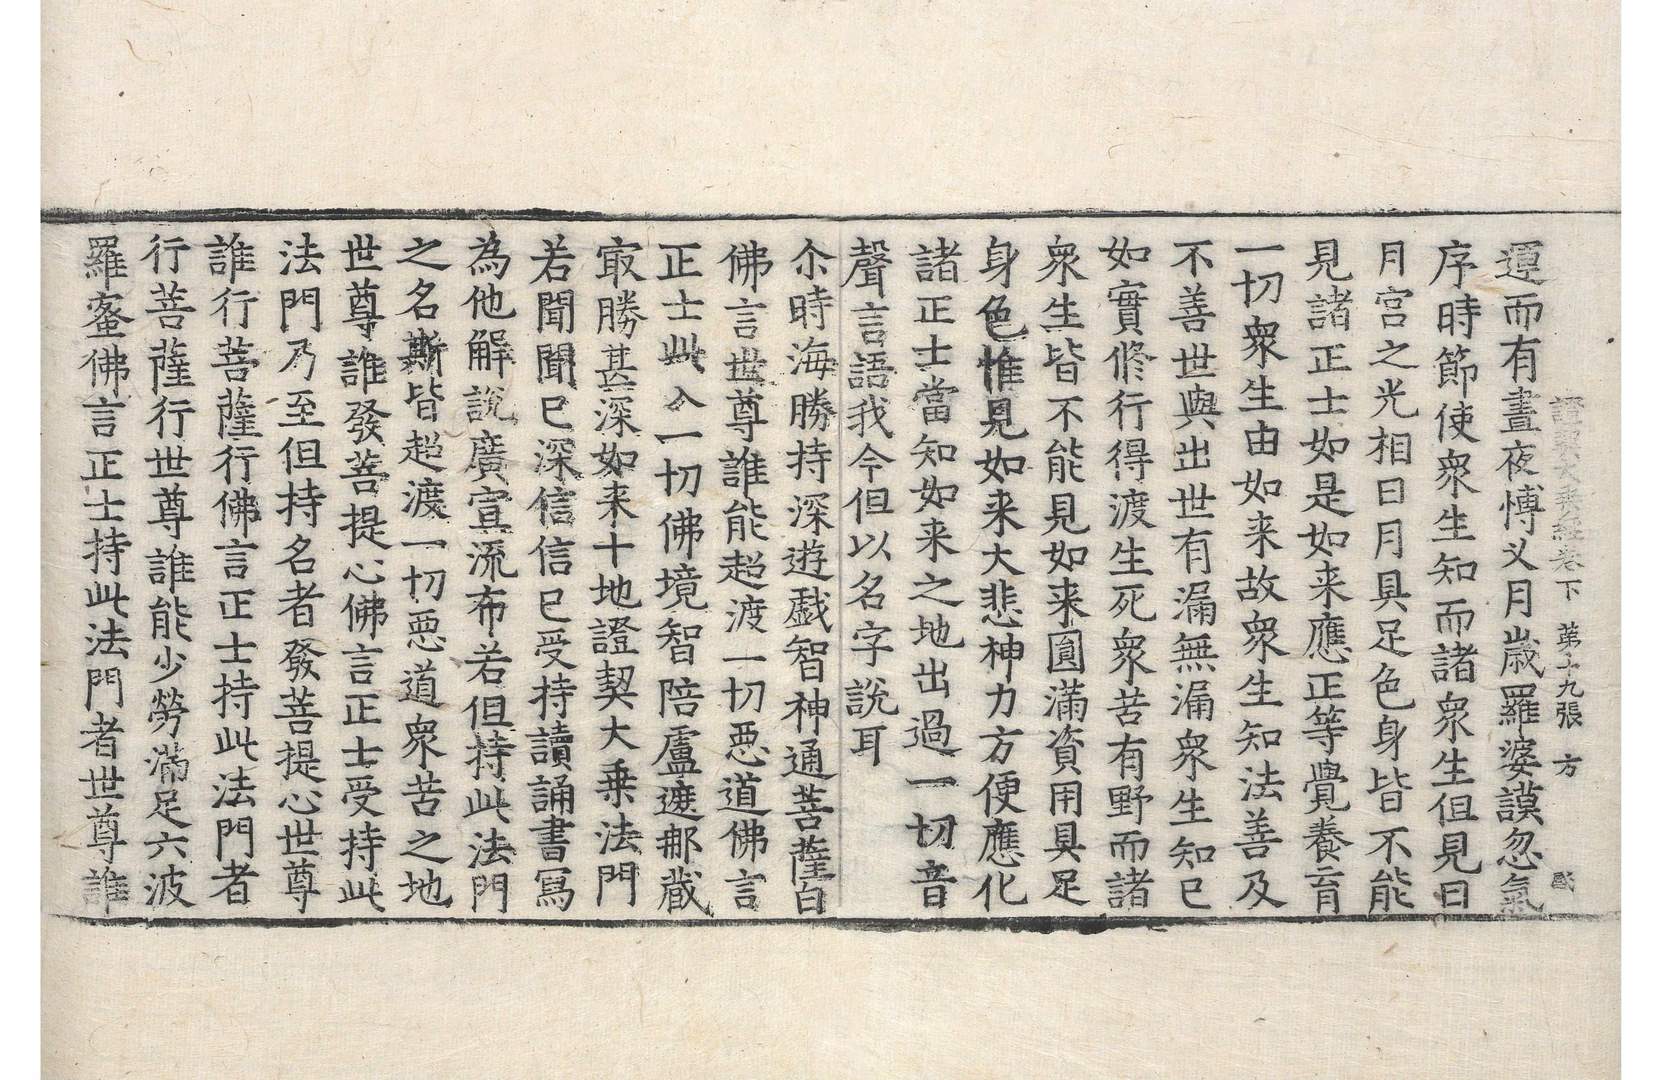 證契大乘經卷下 第十九張 方
運而有晝夜愽义月歲羅婆謨忽氣
序時節使衆生知而諸衆生但見日
月宮之光相日月具足色身皆不能
見諸正士如是如来應正等覺養育
一切衆生由如来故衆生知法善及
不善世與出世有漏無漏衆生知已
如實修行得渡生死衆苦有野而諸
衆生皆不能見如来圓滿資用具足
身色惟見如来大悲神力方便應化
諸正士當知如来之地出過一切音
聲言語我今但以名字說耳
尒時海勝持深遊戲智神通菩薩白
佛言世尊誰能超渡一切惡道佛言
正士此入一切佛境智陪盧遮那藏
㝡勝甚深如来十地證契大乗法門
若聞聞已深信信已受持讀誦書寫
為他解說廣宣流布若但持此法門
之名斯皆超渡一切惡道衆苦之地
世尊誰發菩提心佛言正士受持此
法門乃至但持名者發菩提心世尊
誰行菩薩行佛言正士持此法門者
行菩薩行世尊誰能少勞滿足六波
羅蜜佛言正士持此法門者世尊誰